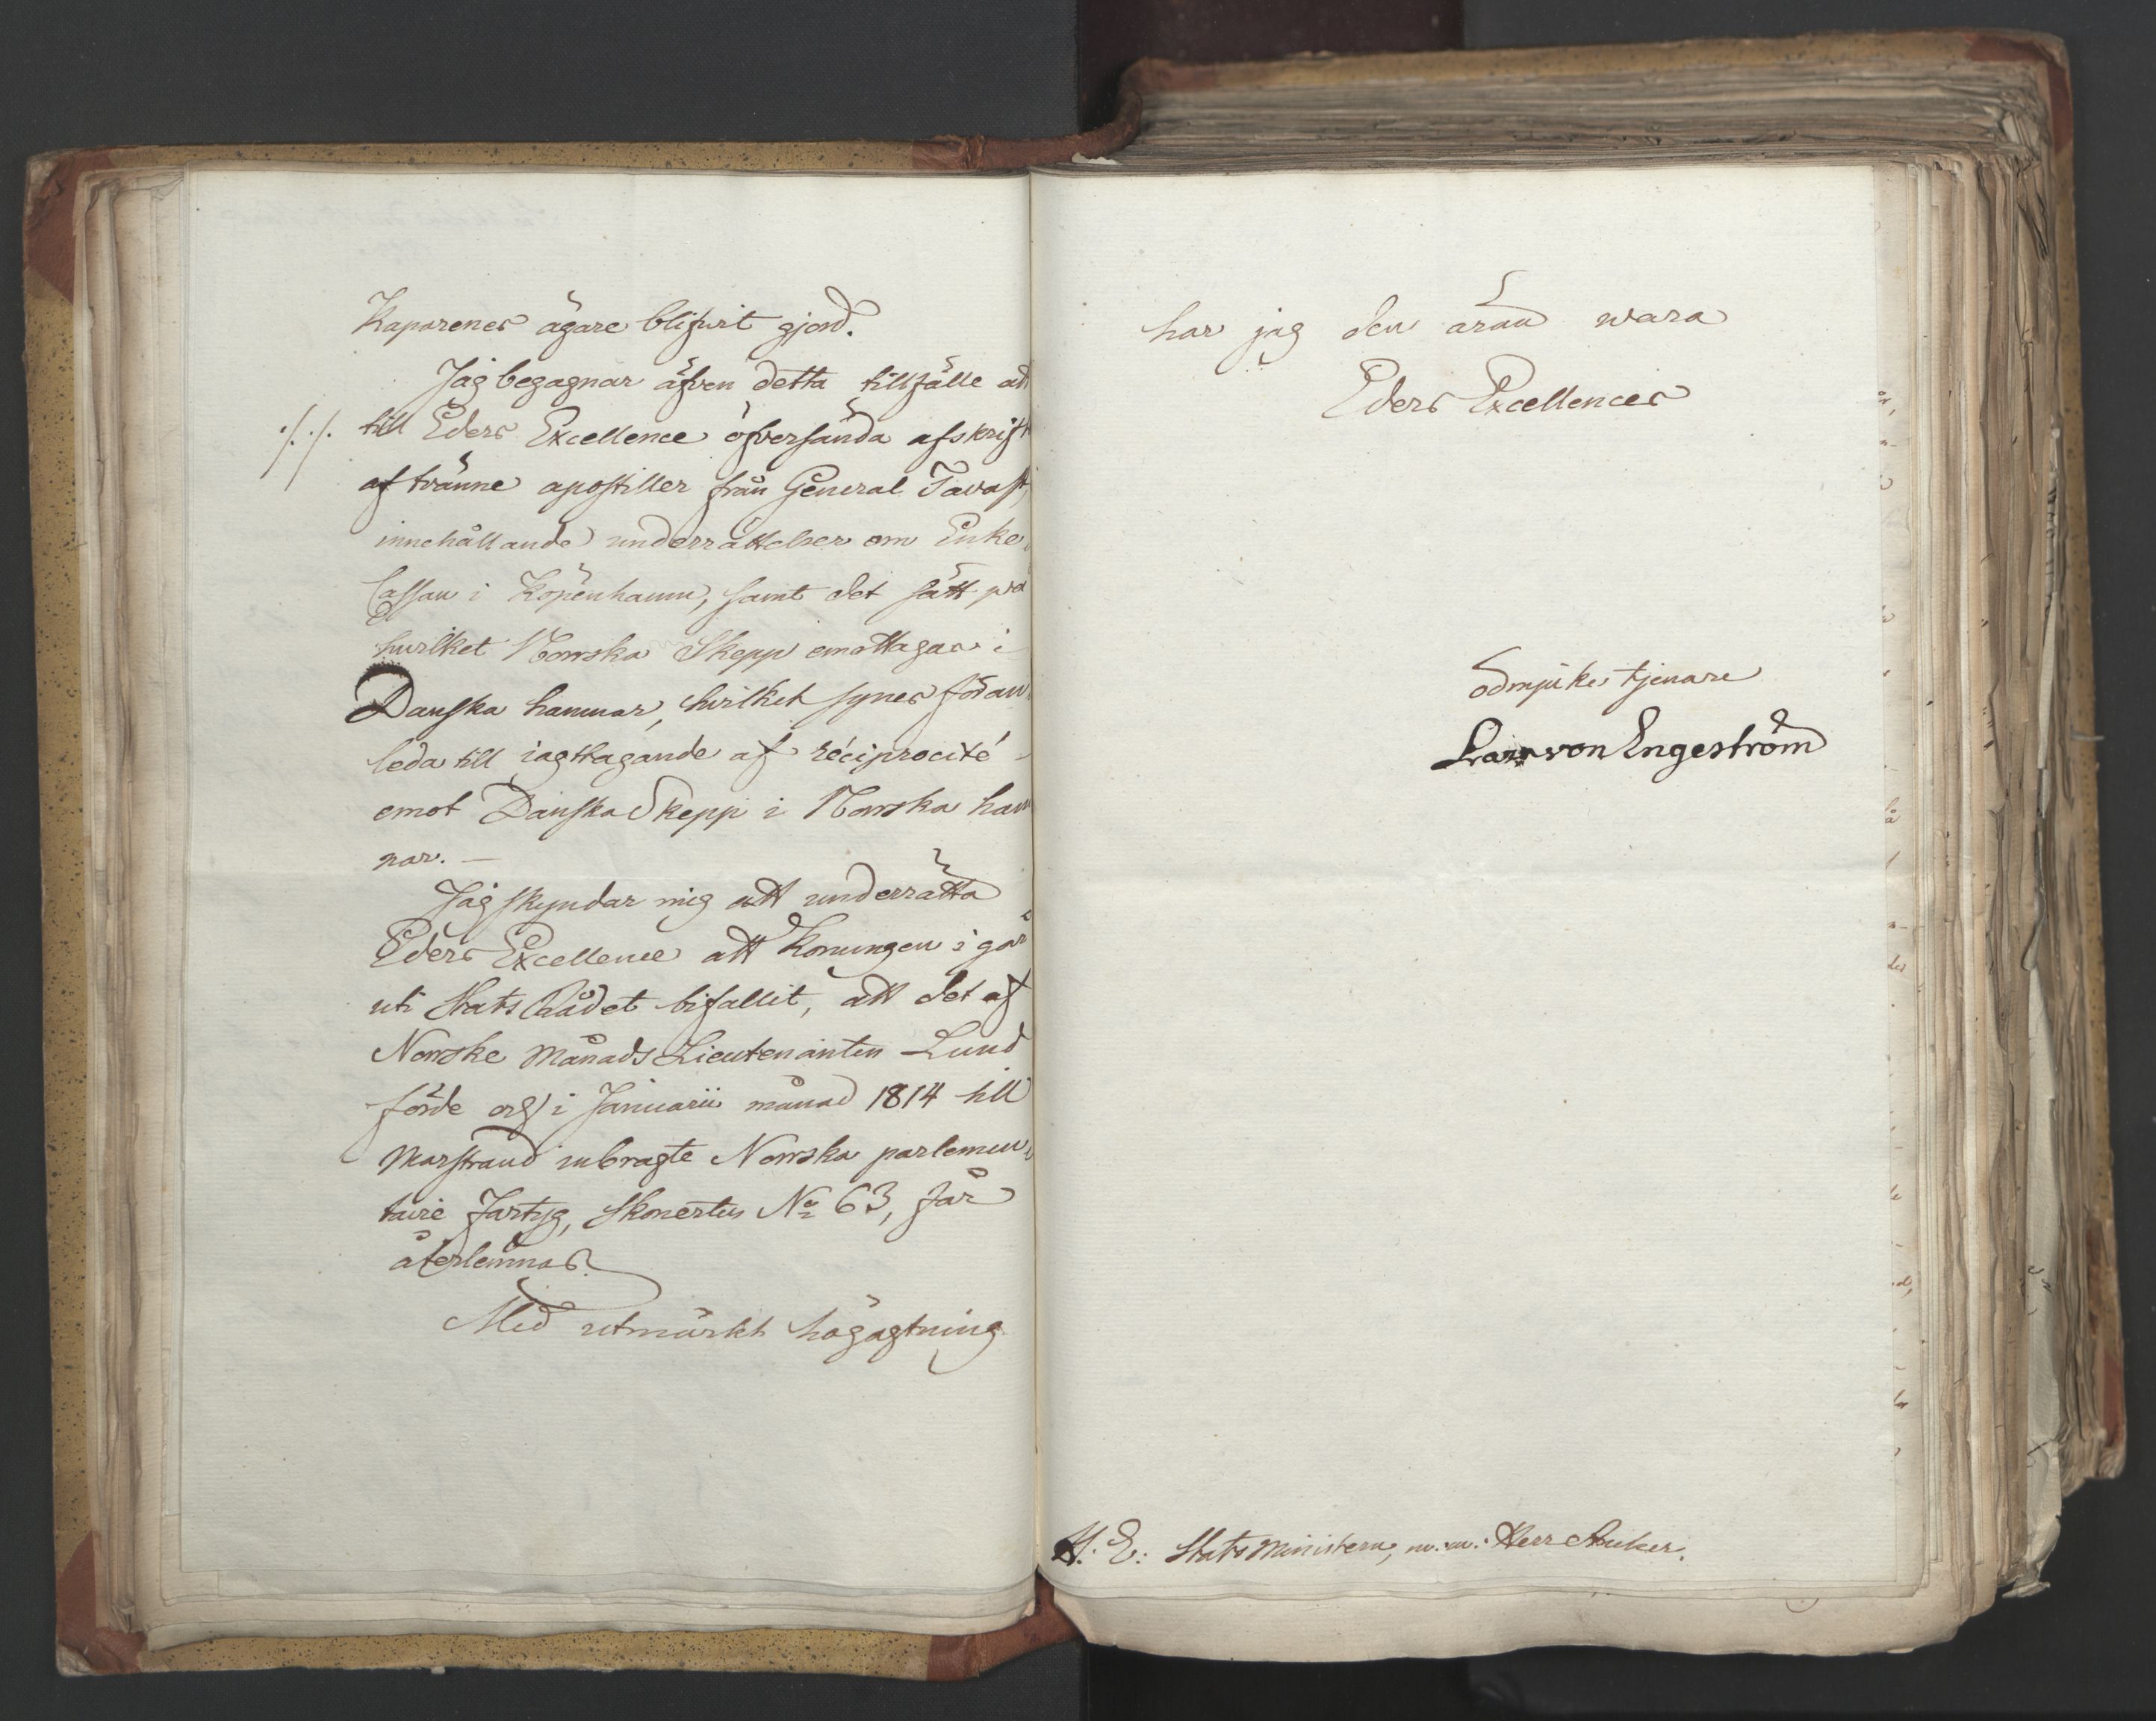 Kaparenes ägare blifvit gjord.
Jag begagnar äfven detta tillfälle att
./. ./. till Eders Excellence öfversända afskrift
af tvänne apostiller från General Tavast,
innehållande underrättelser om Enke
Cassan i Köpenhamn, samt det sätt på
hvilket Norrska Skepp emottagas i
Danska hamnar, hvilket synes föran
leda till iagttagande af réciprocité
emot Danska Skepp i Norrska ham
nar. —
Jag skyndar mig att underrätta
Eders Excellence att Konungen i går
uti StatsRådet bifallit, att det af
Norrske MånadsLieutenanten Lund
förde och i Januarii månad 1814 till
Marstrand inbragte Norrska parlemen
taire Fartyg, Skonerten No 63, får
återlemnas.
Med utmärkt högagtning
har jag den äran wara
Eders Excellences
ödmjuke tjenare
Lars von Engeström
H. E: StatsMinistern, m. m: Herr Anker.